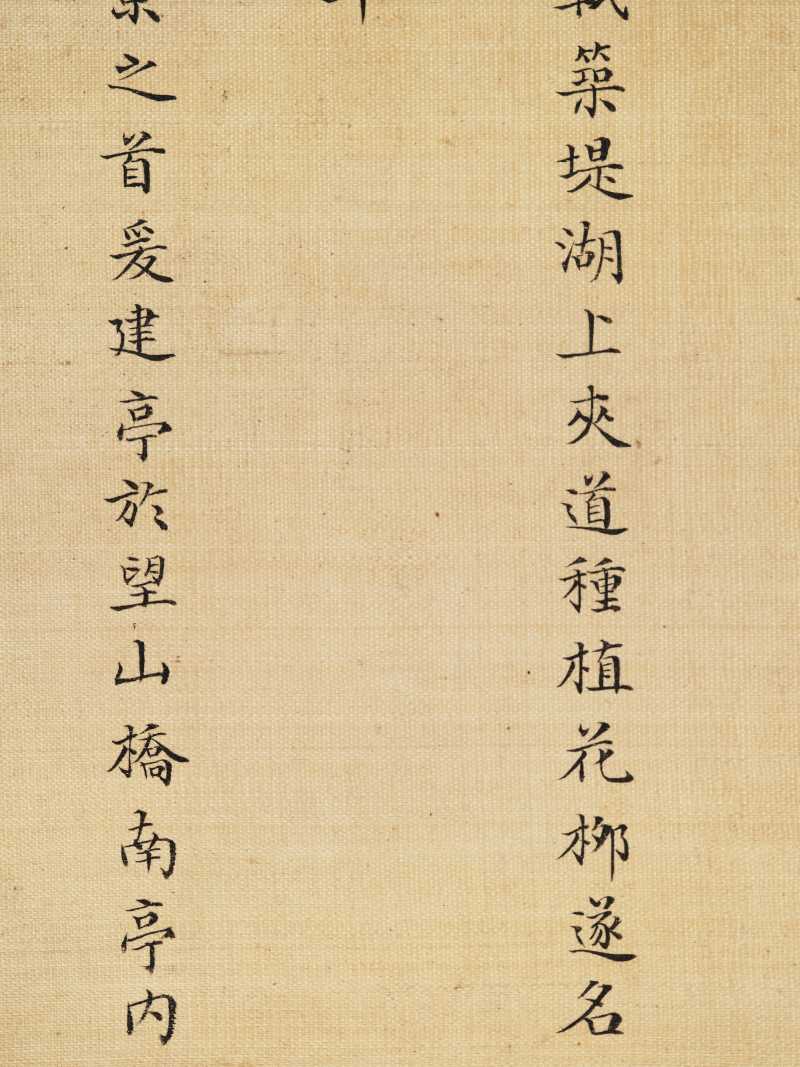 築堤湖上夾道種植花柳遂名
之首爰建亭於望山橋南亭内